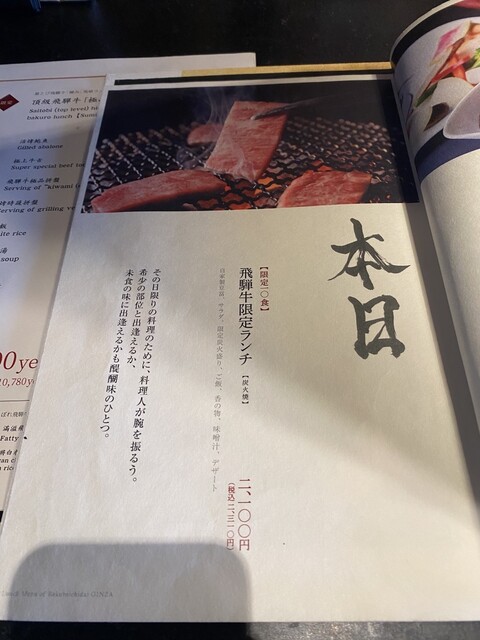 本日
【限定二〇食】
飛騨牛限定ランチ【炭火焼】
自家製豆腐、サラダ、限定炭火盛り、ご飯、香の物、味噌汁、デザート
二、一〇〇円
(税込 二、三一〇円)
その日限りの料理のために、料理人が腕を振るう。
希少の部位と出逢えるか、
未食の味に出逢えるかも醍醐味のひとつ。
頂級飛騨牛「極
Saitobi (top level) hi
bakuro lunch【Sumi
活烤鮑魚
Grilled abalone
極上牛舌
Super special beef to
飛騨牛極品拼盤
Serving of "Kiwami
時蔬拼盤
Serving of grilling ve
飯
ite rice
湯
soup
00ye
10,780ye
Fatty